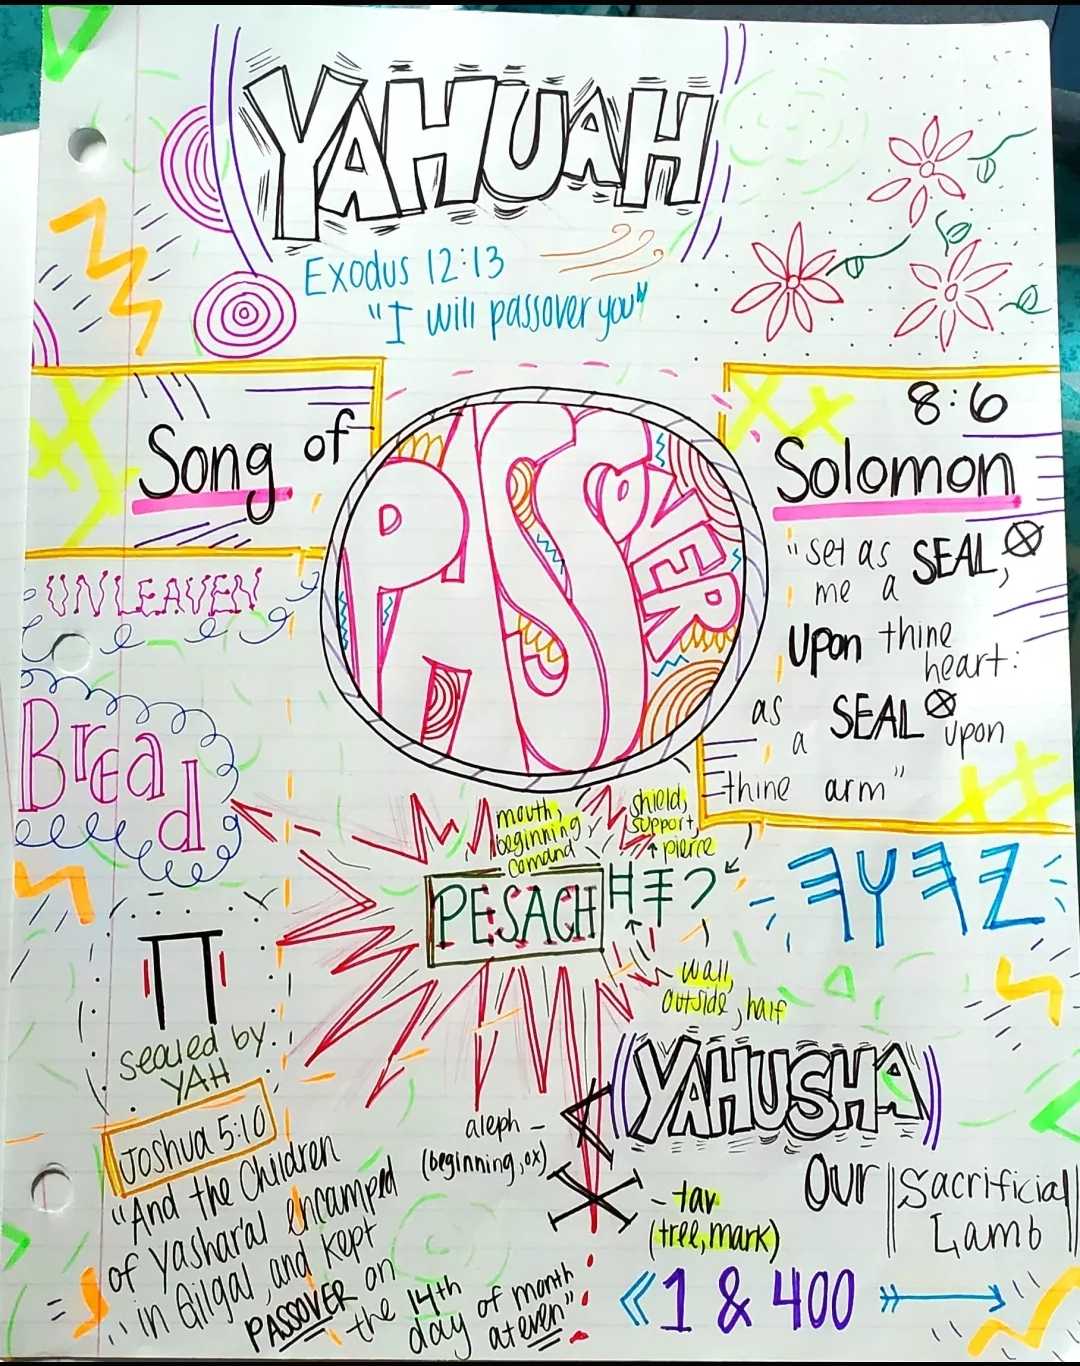 YAHUAH
Exodus 12:13
"I will passover you"
Song of
8:6
Solomon
PASSOVER
"set as SEAL,
me a
upon thine
heart:
as SEAL upon
a
thine arm"
UNLEAVEN
Bread
mouth,
beginning
comand
shield,
support,
pierce
PESACH 𐤐𐤎𐤇
𐤉𐤄𐤅𐤄
wall,
outside, half
sealed by
YAH
YAHUSHA
Our Sacrificial
Lamb
aleph -
(beginning, ox)
𐤀
𐤕
- tav
(tree, mark)
1 & 400
Joshua 5:10
"And the Children
of Yashara'al encamped
in Gilgal, and kept
PASSOVER on
the 14th
day of month
at even"